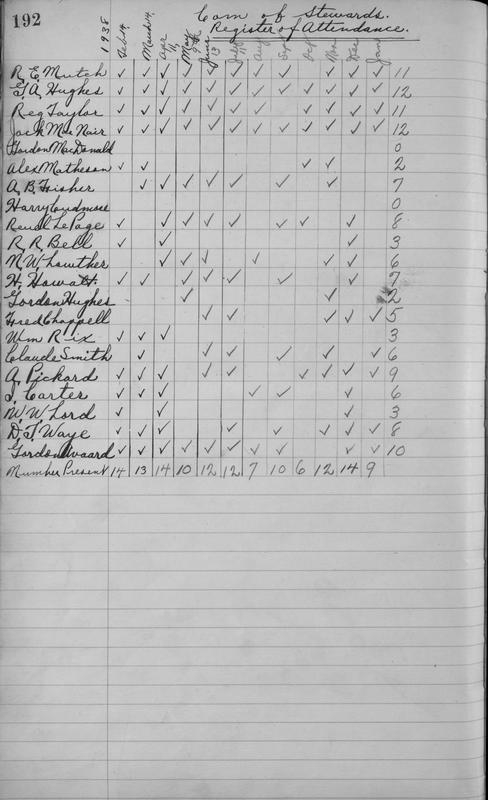 192
Com of Stewards.
Register of Attendance.
1938 Feb 14 March 14 Apr 11 May 9th June 13 July 11 Aug Sep Oct Nov Dec Jan
R. E. Mutch ✓ ✓ ✓ ✓ ✓ ✓ ✓ ✓ ✓ ✓ ✓ 11
G. A. Hughes ✓ ✓ ✓ ✓ ✓ ✓ ✓ ✓ ✓ ✓ ✓ ✓ 12
Reg Taylor ✓ ✓ ✓ ✓ ✓ ✓ ✓ ✓ ✓ ✓ ✓ 11
Jack MacNair ✓ ✓ ✓ ✓ ✓ ✓ ✓ ✓ ✓ ✓ ✓ ✓ 12
Gordon MacDonald 0
Alex Matheson ✓ ✓ ✓ ✓ 2
A. B. Fisher ✓ ✓ ✓ ✓ ✓ ✓ ✓ 7
Harry Cudmore 0
Reual LePage ✓ ✓ ✓ ✓ ✓ ✓ ✓ ✓ 8
R. R. Bell ✓ ✓ ✓ 3
N. W. Lowther ✓ ✓ ✓ ✓ ✓ ✓ 6
H. Howatt. ✓ ✓ ✓ ✓ ✓ ✓ ✓ 7
Gordon Hughes ✓ ✓ 2
Fred Chappell ✓ ✓ ✓ ✓ ✓ 5
Wm Rix ✓ ✓ ✓ 3
Claude Smith ✓ ✓ ✓ ✓ ✓ ✓ 6
A. Pickard ✓ ✓ ✓ ✓ ✓ ✓ ✓ ✓ ✓ 9
J. Carter ✓ ✓ ✓ ✓ ✓ ✓ 6
W W Lord ✓ ✓ ✓ 3
D. T. Waye ✓ ✓ ✓ ✓ ✓ ✓ ✓ ✓ 8
Gordon Awaard ✓ ✓ ✓ ✓ ✓ ✓ ✓ ✓ ✓ ✓ 10
Number Present 14 13 14 10 12 12 7 10 6 12 14 9